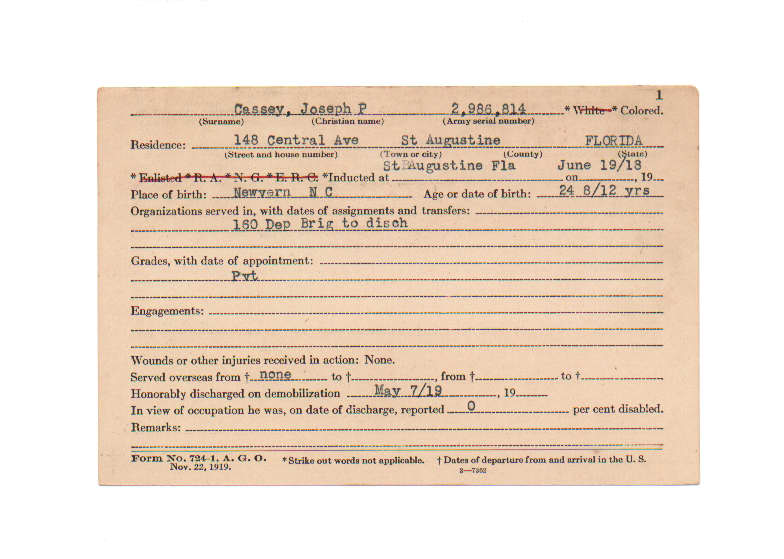 1
Cassey, Joseph P 2,986,814 * White * Colored.
(Surname) (Christian name) (Army serial number)
Residence: 148 Central Ave St Augustine FLORIDA
(Street and house number) (Town or city) (County) (State)
* Enlisted * R. A. * N. G. * E. R. C. * Inducted at St Augustine Fla on June 19/18, 19
Place of birth: Newvern N C Age or date of birth: 24 8/12 yrs
Organizations served in, with dates of assignments and transfers:
160 Dep Brig to disch
Grades, with date of appointment:
Pvt
Engagements:
Wounds or other injuries received in action: None.
Served overseas from † none to †, from † to †
Honorably discharged on demobilization May 7/19, 19
In view of occupation he was, on date of discharge, reported 0 per cent disabled.
Remarks:
Form No. 724-1, A. G. O. * Strike out words not applicable. † Dates of departure from and arrival in the U. S.
Nov. 22, 1919. 3—7302